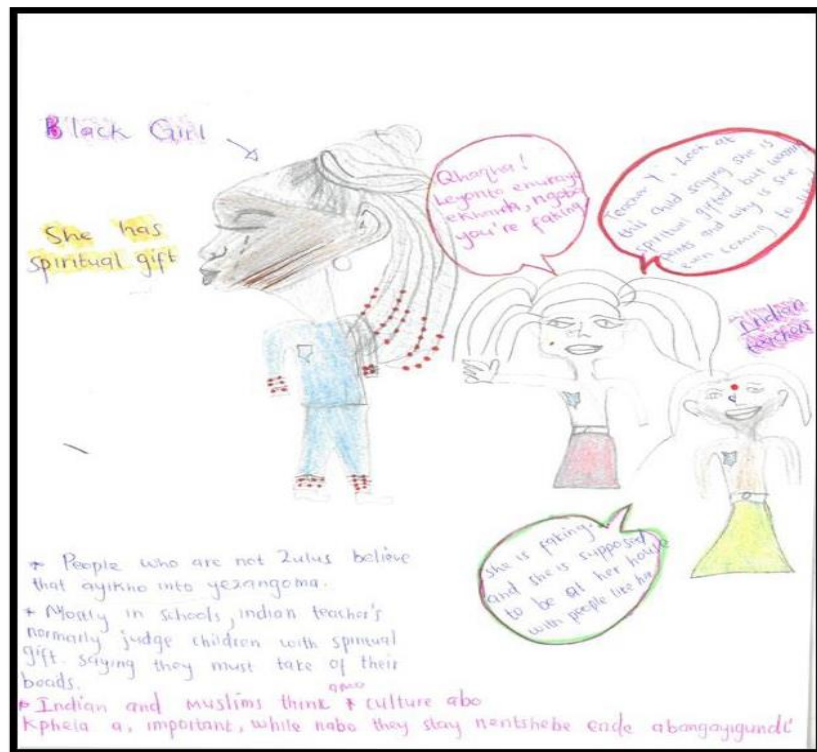 Black Girl
She has
spiritual gift
Qhaqha!
Leyonto
ekhanda, ngoba
you're faking
Teacher Y, Look at
this child saying she is
spiritual gifted but
pants and why is she
even coming to
Indian
teachers
she is faking.
and she is supposed
to be at her house
with people like her
* People who are not Zulus believe
that ayikho into yezangoma.
* Mostly in schools, indian teacher's
normally judge children with spiritual
gift. saying they must take of their
beads.
* Indian and muslims think culture abo
kphela a, important, while nabo they stay nentshebe ende abangayigundi